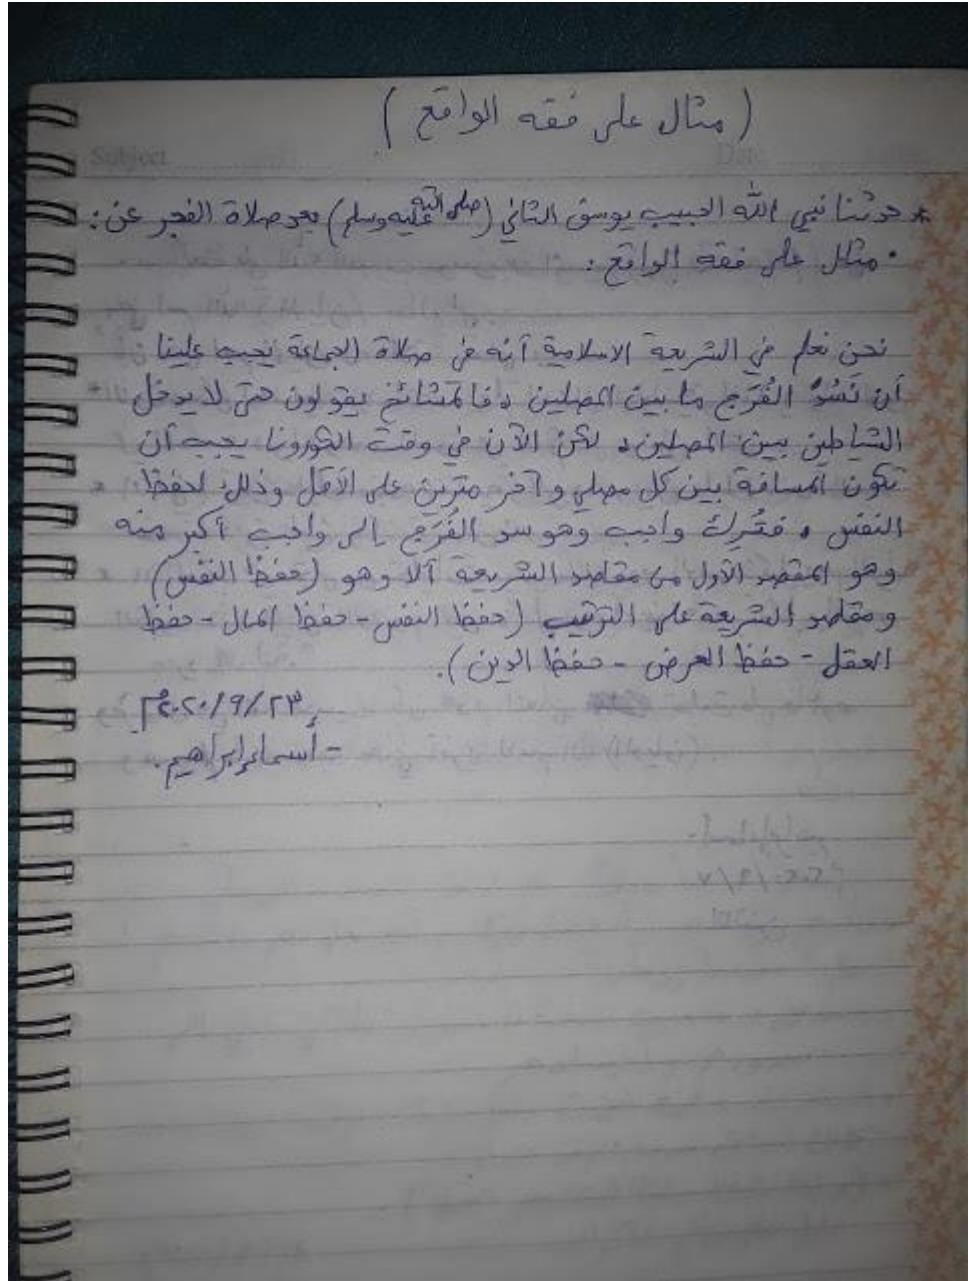 ( مثال على فقه الواقع )
Subject
Date
* حدثنا نبي الله الحبيب يوسف الثاني (صلى الله عليه وسلم) بعد صلاة الفجر عن:
• مثال على فقه الواقع:
نحن نعلم في الشريعة الاسلامية أنه في صلاة الجماعة يجب علينا
أن نَسُدَّ الفُرَج ما بين المصلين، فالمشائخ يقولون حتى لا يدخل
الشياطين بين المصلين، لكن الآن في وقت الكورونا يجب أن
تكون المسافة بين كل مصلي وآخر مترين على الأقل وذلك لحفظ
النفس، فتُرِكَ واجب وهو سد الفُرَج إلى واجب أكبر منه
وهو المقصد الأول من مقاصد الشريعة ألا وهو (حفظ النفس)
ومقاصد الشريعة على الترتيب (حفظ النفس - حفظ المال - حفظ
العقل - حفظ العرض - حفظ الدين).
٢٠٢٠/٩/٢٣م
- أسماء إبراهيم.